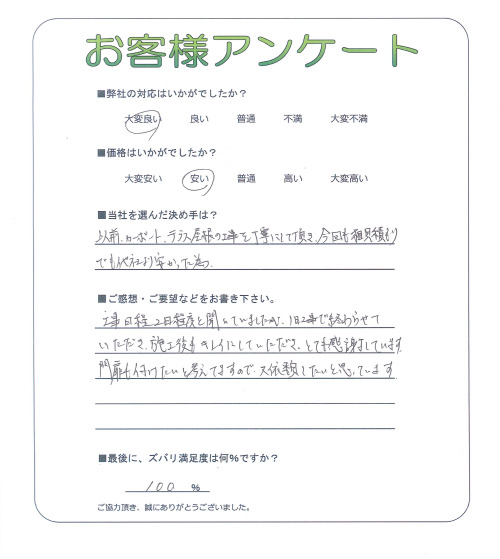 お客様アンケート
■弊社の対応はいかがでしたか？
大変良い 良い 普通 不満 大変不満
■価格はいかがでしたか？
大変安い 安い 普通 高い 大変高い
■当社を選んだ決め手は？
以前、カーポート、テラス屋根の工事を丁寧にして頂き、今回も相見積もり
でも他社より安かった為。
■ご感想・ご要望などをお書き下さい。
工事日程2日程度と聞いていましたが、1日工事で終わらせて
いただき、施工後もキレイにしていただき、とても感謝しています。
門扉も付けたいと考えてますので、又依頼したいと思っています
■最後に、ズバリ満足度は何％ですか？
100 %
ご協力頂き、誠にありがとうございました。